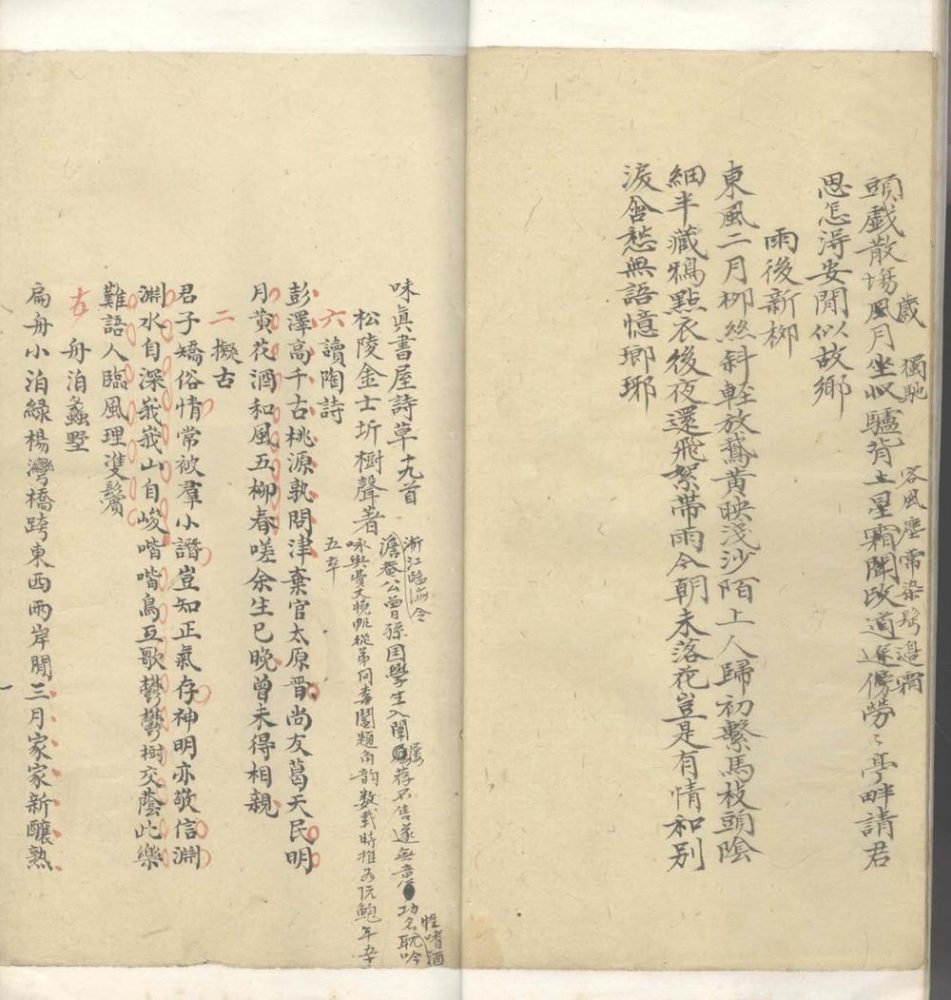 頭戯散場風月坐似驢背上星霜聞改道遥傍勞〻亭畔請君
歳
獨馳
客風塵常染髩邊霜
思怎得安閒似故鄉
雨後新栁
東風二月栁絲斜輕放鵞黃映淺沙陌上人歸初繫馬枝頭陰
細半藏鴉點衣後夜還飛絮帶雨今朝未落花豈是有情和别
淚含愁無語憶瑯琊
味真書屋詩草十九首
松陵金士圻樹聲著
浙江臨海令
澹菴公曾孫国學生入闈屡荐不售遂無意功名耽吟
性嗜酒
咏與費文晚帆從弟何春圃題角韵数載時推为阮鮑年卒
五卒
六
讀陶詩
彭澤高千古桃源孰問津棄官太原晋尚友葛天民明
月黃花酒和風五柳春嗟余生已晚曾未得相親
二
擬古
君子矯俗情常被羣小譖豈知正氣存神明亦敬信淵
淵水自深峩峩山自峻喈喈鳥互歌欝欝樹交蔭此樂
難語人臨風理雙鬢
舟泊蠡墅
扁舟小泊綠楊灣橋跨東西兩岸閒三月家家新釀熟